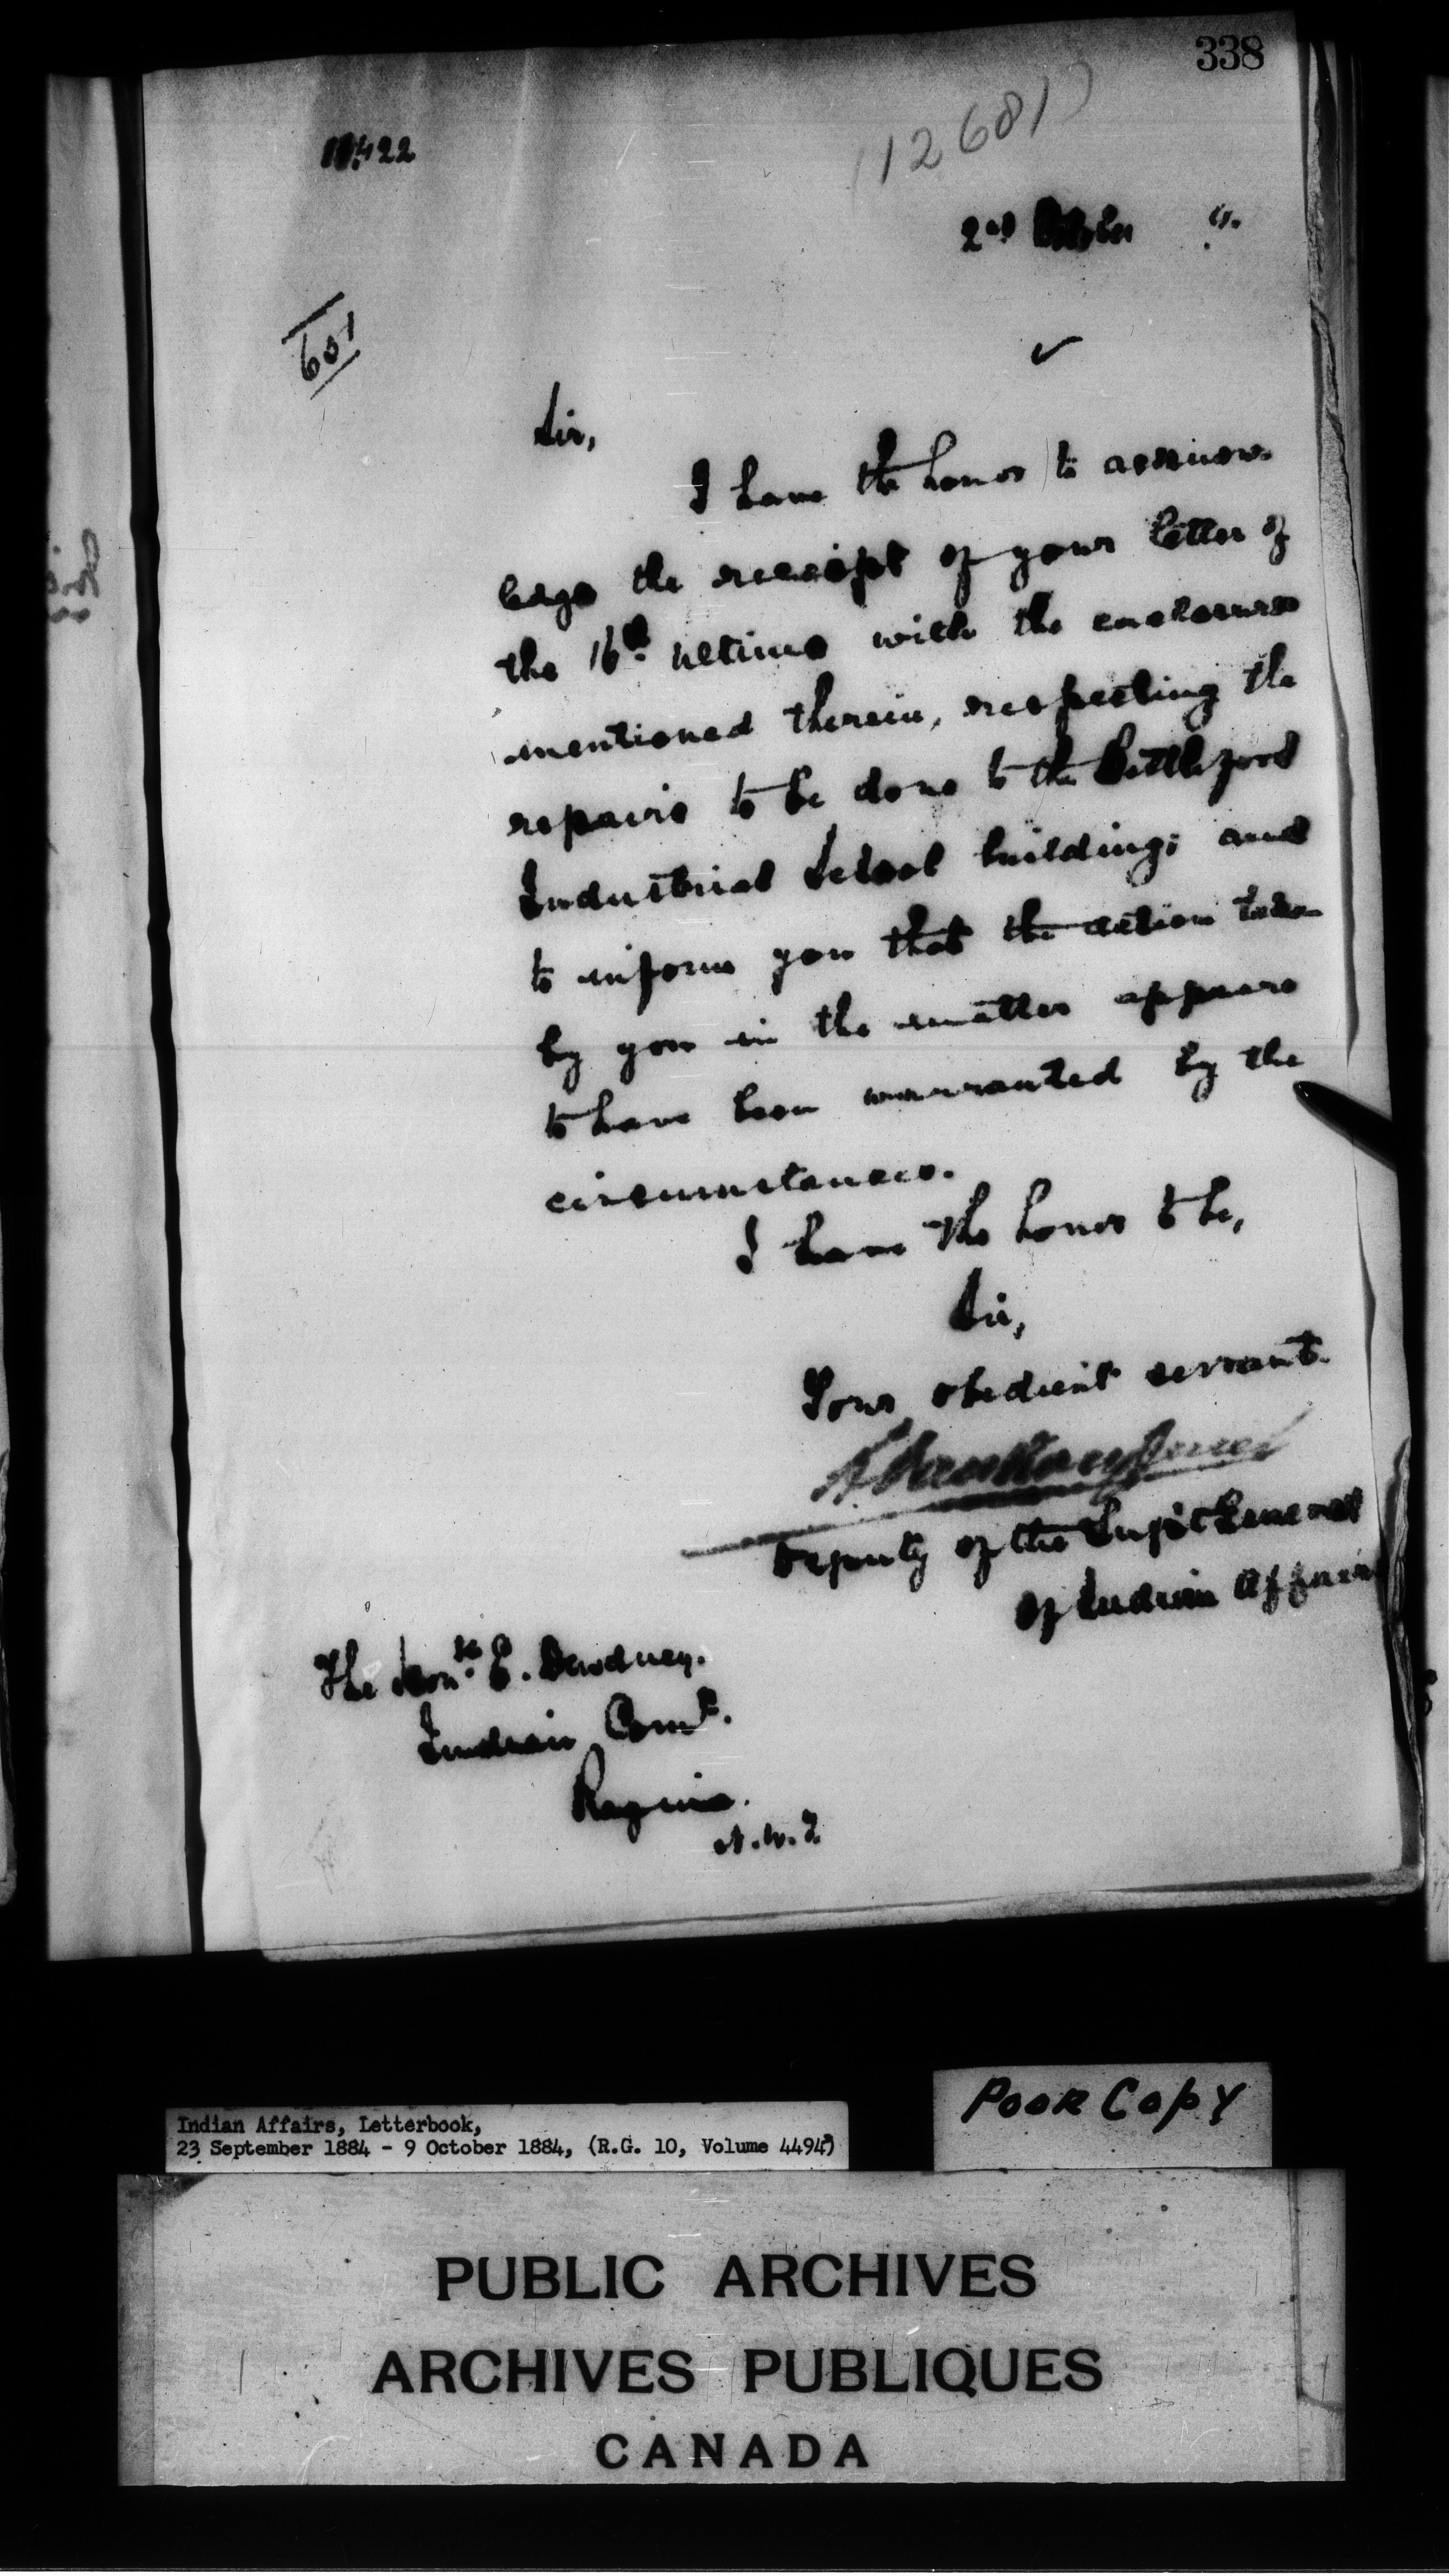 338
(12681)
2nd October
601
Sir,
I have the honor to acknow-
ledge the receipt of your letter of
the 16th ultimo with the enclosures
mentioned therein, respecting the
repairs to be done to the Battleford
Industrial School buildings and
to inform you that the action taken
by you in the matter appears
to have been warranted by the
circumstances.
I have the honor to be,
Sir,
Your obedient servant.
L. Vankoughnet
Deputy of the Supt General
of Indian Affairs
The Honble E. Dewdney.
Indian Comr.
Regina.
N.W.T.
Indian Affairs, Letterbook,
23 September 1884 - 9 October 1884, (R.G. 10, Volume 4494)
POOR COPY
PUBLIC ARCHIVES
ARCHIVES PUBLIQUES
CANADA